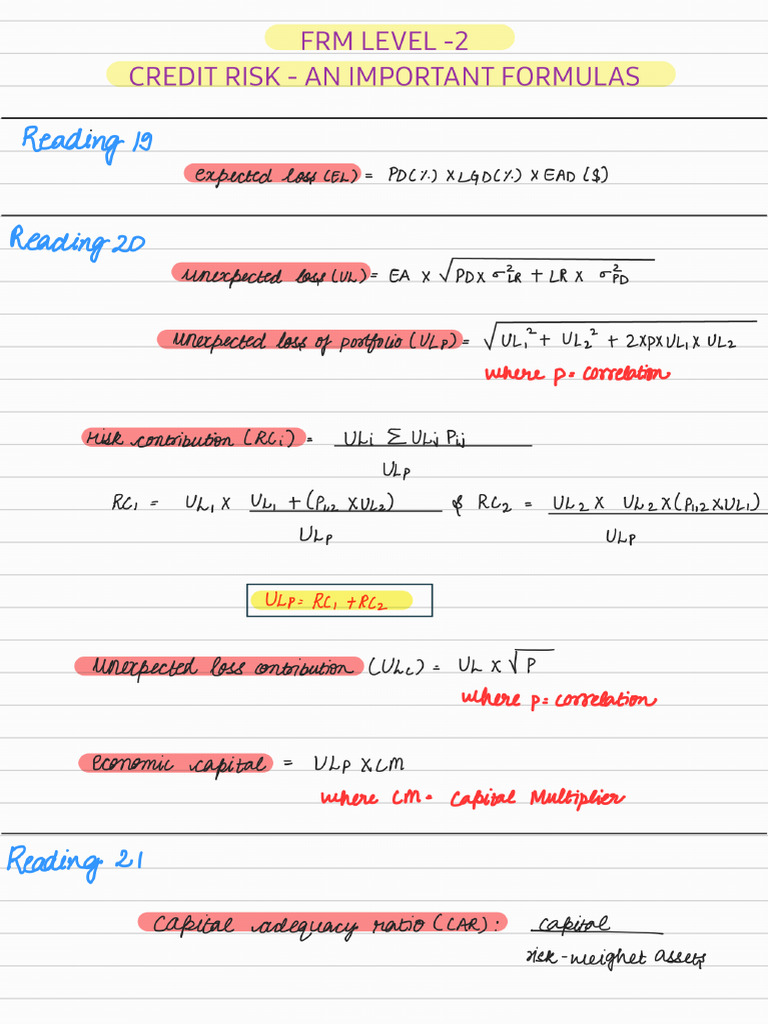 FRM LEVEL -2
CREDIT RISK - AN IMPORTANT FORMULAS
Reading 19
expected loss (EL) = PD(%) × LGD(%) × EAD ($)
Reading 20
unexpected loss (UL) = EA × √(PD × σ²LR + LR × σ²PD)
Unexpected loss of portfolio (ULP) = √(UL₁² + UL₂² + 2×P×UL₁×UL₂)
where P = correlation
risk contribution (RCi) = ULi Σ ULj Pij
ULP
RC₁ = UL₁ × UL₁ + (P₁,₂ × UL₂) & RC₂ = UL₂ × UL₂ × (P₁,₂ × UL₁)
ULP ULP
ULP = RC₁ + RC₂
Unexpected loss contribution (ULC) = UL × √P
where P = correlation
economic capital = ULP × CM
where CM = Capital Multiplier
Reading 21
Capital adequacy ratio (CAR) : capital
risk-weighet assets